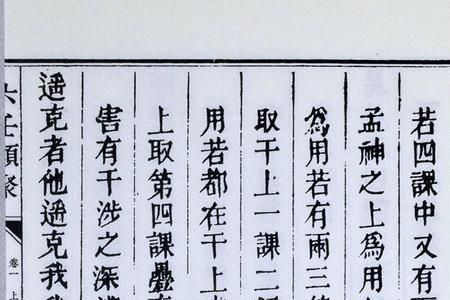 若四課中又有
孟神之上爲用
爲用若有兩三
取干上一課二
用若都在干上
上取第四課疊
害有干涉之深
遥克者他遥克我
六壬類聚 卷一 上